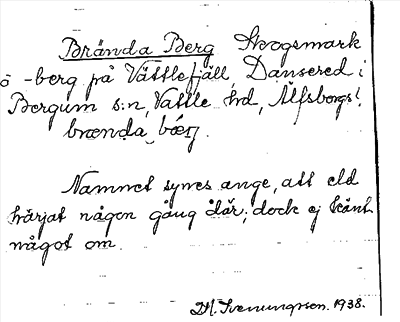 Brända Berg Skogsmark
o -berg på Vättlefjäll, Dansered i
Bergum s:n, Vättle hrd, Älfsborgs l.
brænda bærj.
Namnet synes ange, att eld
härjat någon gång där; dock ej känt
något om.
D. H. Svenungsson. 1938.